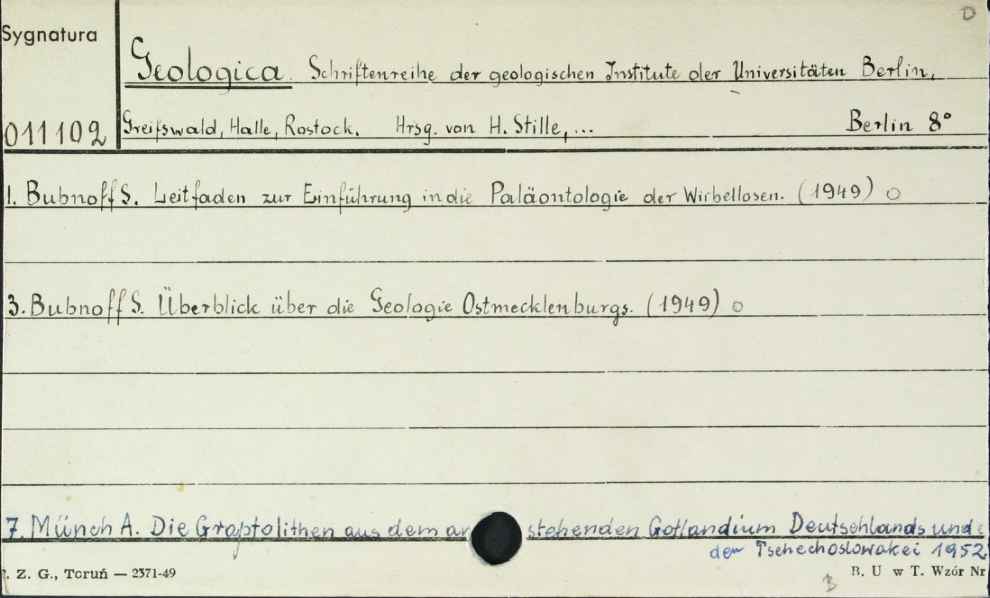 D
Sygnatura
Geologica. Schriftenreihe der geologischen Institute der Universitäten Berlin,
011102 Greifswald, Halle, Rostock. Hrsg. von H. Stille, ... Berlin 8°
1. Bubnoff S. Leitfaden zur Einführung in die Paläontologie der Wirbellosen. (1949) o
3. Bubnoff S. Überblick über die Geologie Ostmecklenburgs. (1949) o
7. Münch A. Die Graptolithen aus dem an stehenden Gotlandium Deutschlands und
der Tschechoslowakei 1952
. Z. G., Toruń — 2371-49 B. U w T. Wzór Nr